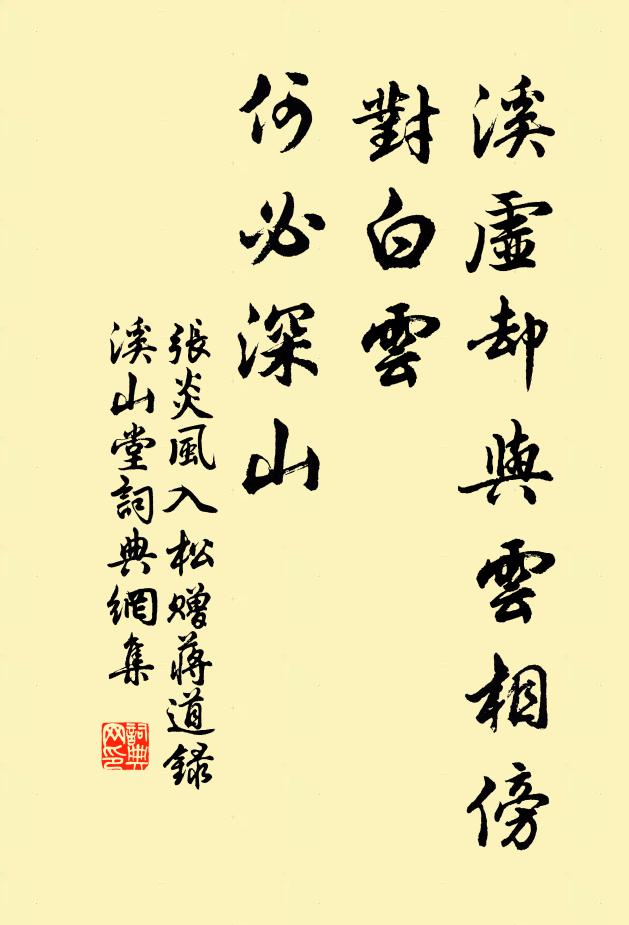 溪虛却與雲相傍
對白雲
何必深山
張炎風入松贈蔣道錄
溪山堂詞典網集
詞典
网印